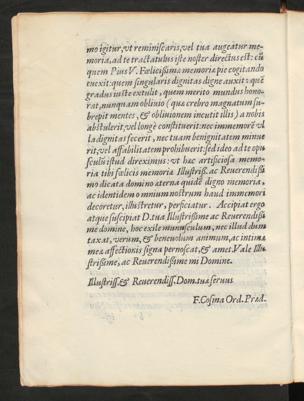 mo igitur, vt reminiscaris, vel tua augeatur me-
moria, ad te tractatulus iste noster directus est: cũ
quem Pius V. Fœlicissimæ memoriæ pie cogitando
euexit: quem singularis dignitas digne auxit: quẽ
gradus iustus extulit, quem merito mundus hono-
rat, nunquam obliuio (quæ crebro magnatum su-
brepit mentes, & obliuionem incutit illis) a nobis
abstulerit, vel longè constituerit: nec immemorẽ vl
la dignitas fecerit, nec tuam benignitatem minue
rit, vel affabilitatem prohibuerit: sed ideo ad te opu
sculũ istud direximus: vt hac artificiosa memo-
ria tibi fœlicis memoriæ Illustriss. ac Reuerendissi
mo dicata domino æterna quidẽ digno memoria,
ac identidem omnium nostrum haud immemori
decoretur, illustretur, perficiatur. Accipiat ergo
atque suscipiat D. tua Illustrissime ac Reuerendissi
me domine, hoc exile munusculum, nec illud dum
taxat, verum, & beneuolum animum, ac intimæ
meæ affectionis signa pernoscat, & amet. Vale Illu
strissime, ac Reuerendissime mi Domine.
Illustriss. & Reuerendiss. Dom. tuæ seruus
F. Cosma Ord. Præd.